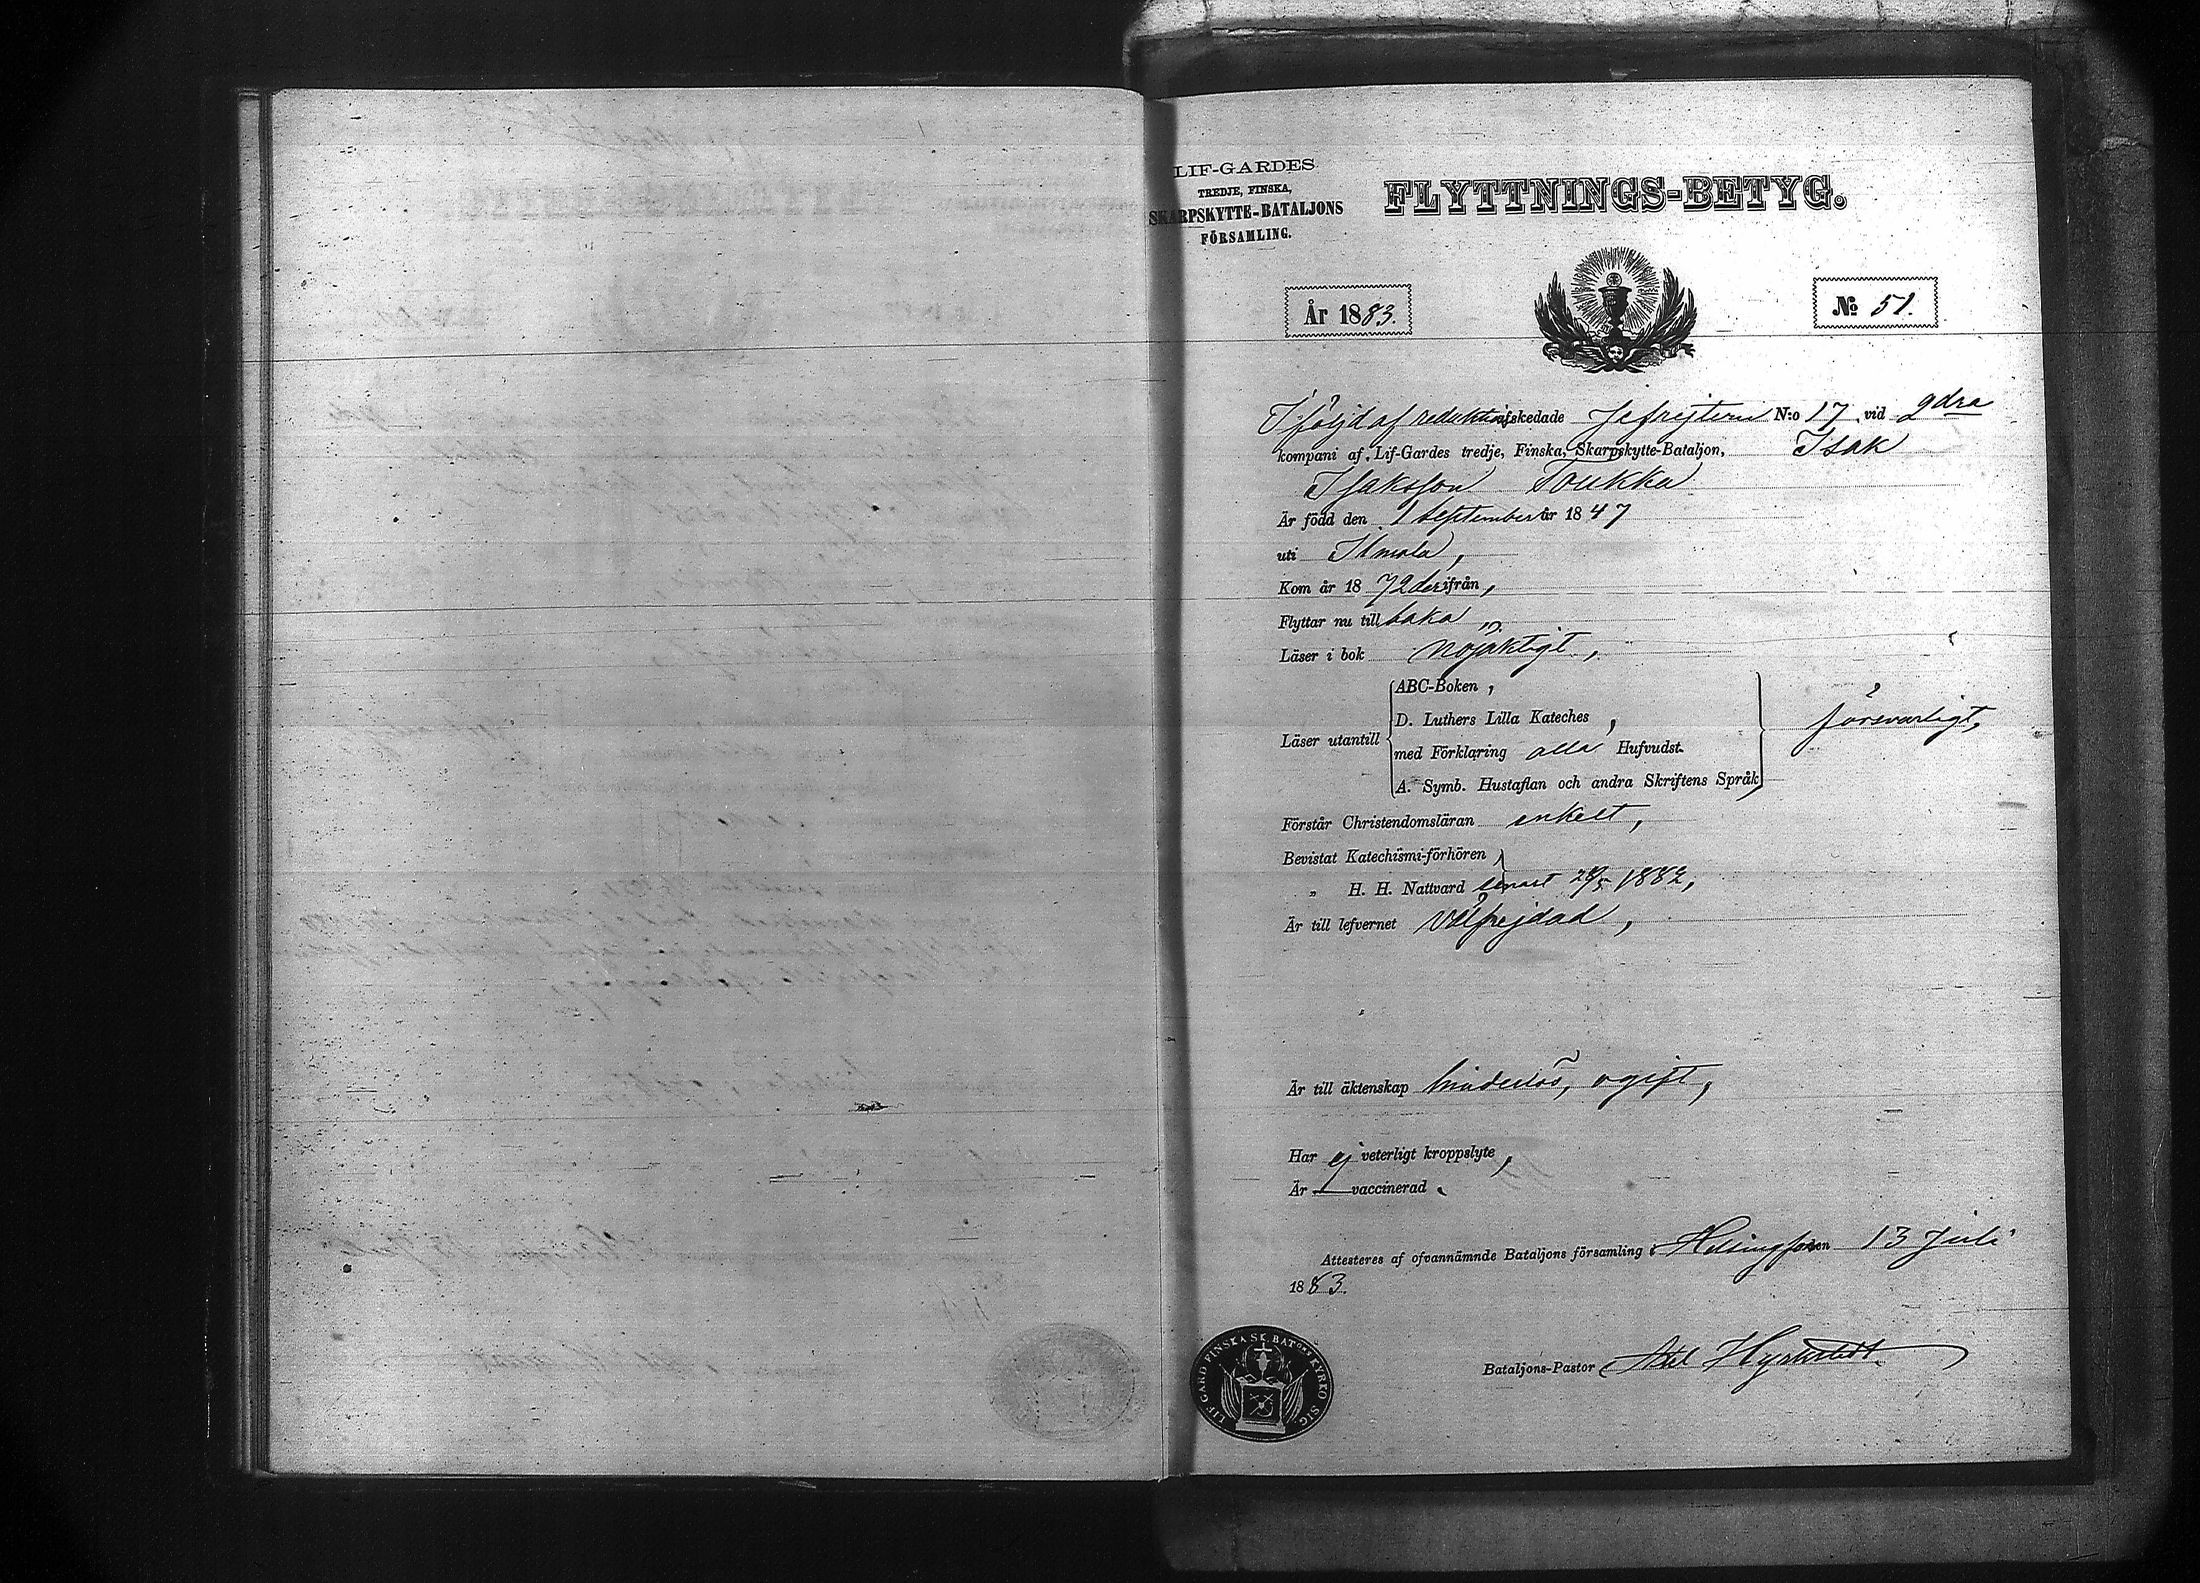 LIF-GARDES
TREDJE, FINSKA,
SKARPSKYTTE-BATALJONS
FÖRSAMLING.
FLYTTNINGS-BETYG.
År 1883.
No 51.
I följd af reduktion afskedade Jefrejtern N:o 17 vid 2dra
kompani af Lif-Gardes tredje, Finska, Skarpskytte-Bataljon, Isak
Isaksson Toukka
Är född den 1 September år 1847
uti Ilmola,
Kom år 1872 derifrån,
Flyttar nu tillbaka,
Läser i bok nöjaktigt,
Läser utantill
ABC-Boken,
D. Luthers Lilla Kateches,
med Förklaring alla Hufvudst.
A. Symb. Hustaflan och andra Skriftens Språk,
försvarligt,
Förstår Christendomsläran enkelt,
Bevistat Katechismi-förhören
„ H. H. Nattvard senast 28/5 1882,
Är till lefvernet välfrejdad,
Är till äktenskap hinderlös, ogift,
Har ej veterligt kroppslyte,
Är — vaccinerad.
Attesteres af ofvannämnde Bataljons församling i Helsingfors den 13 Juli
1883.
Bataljons-Pastor Axel
LIF-GARD. FINSKA SK. BAT:ONS KYRKO SIG.